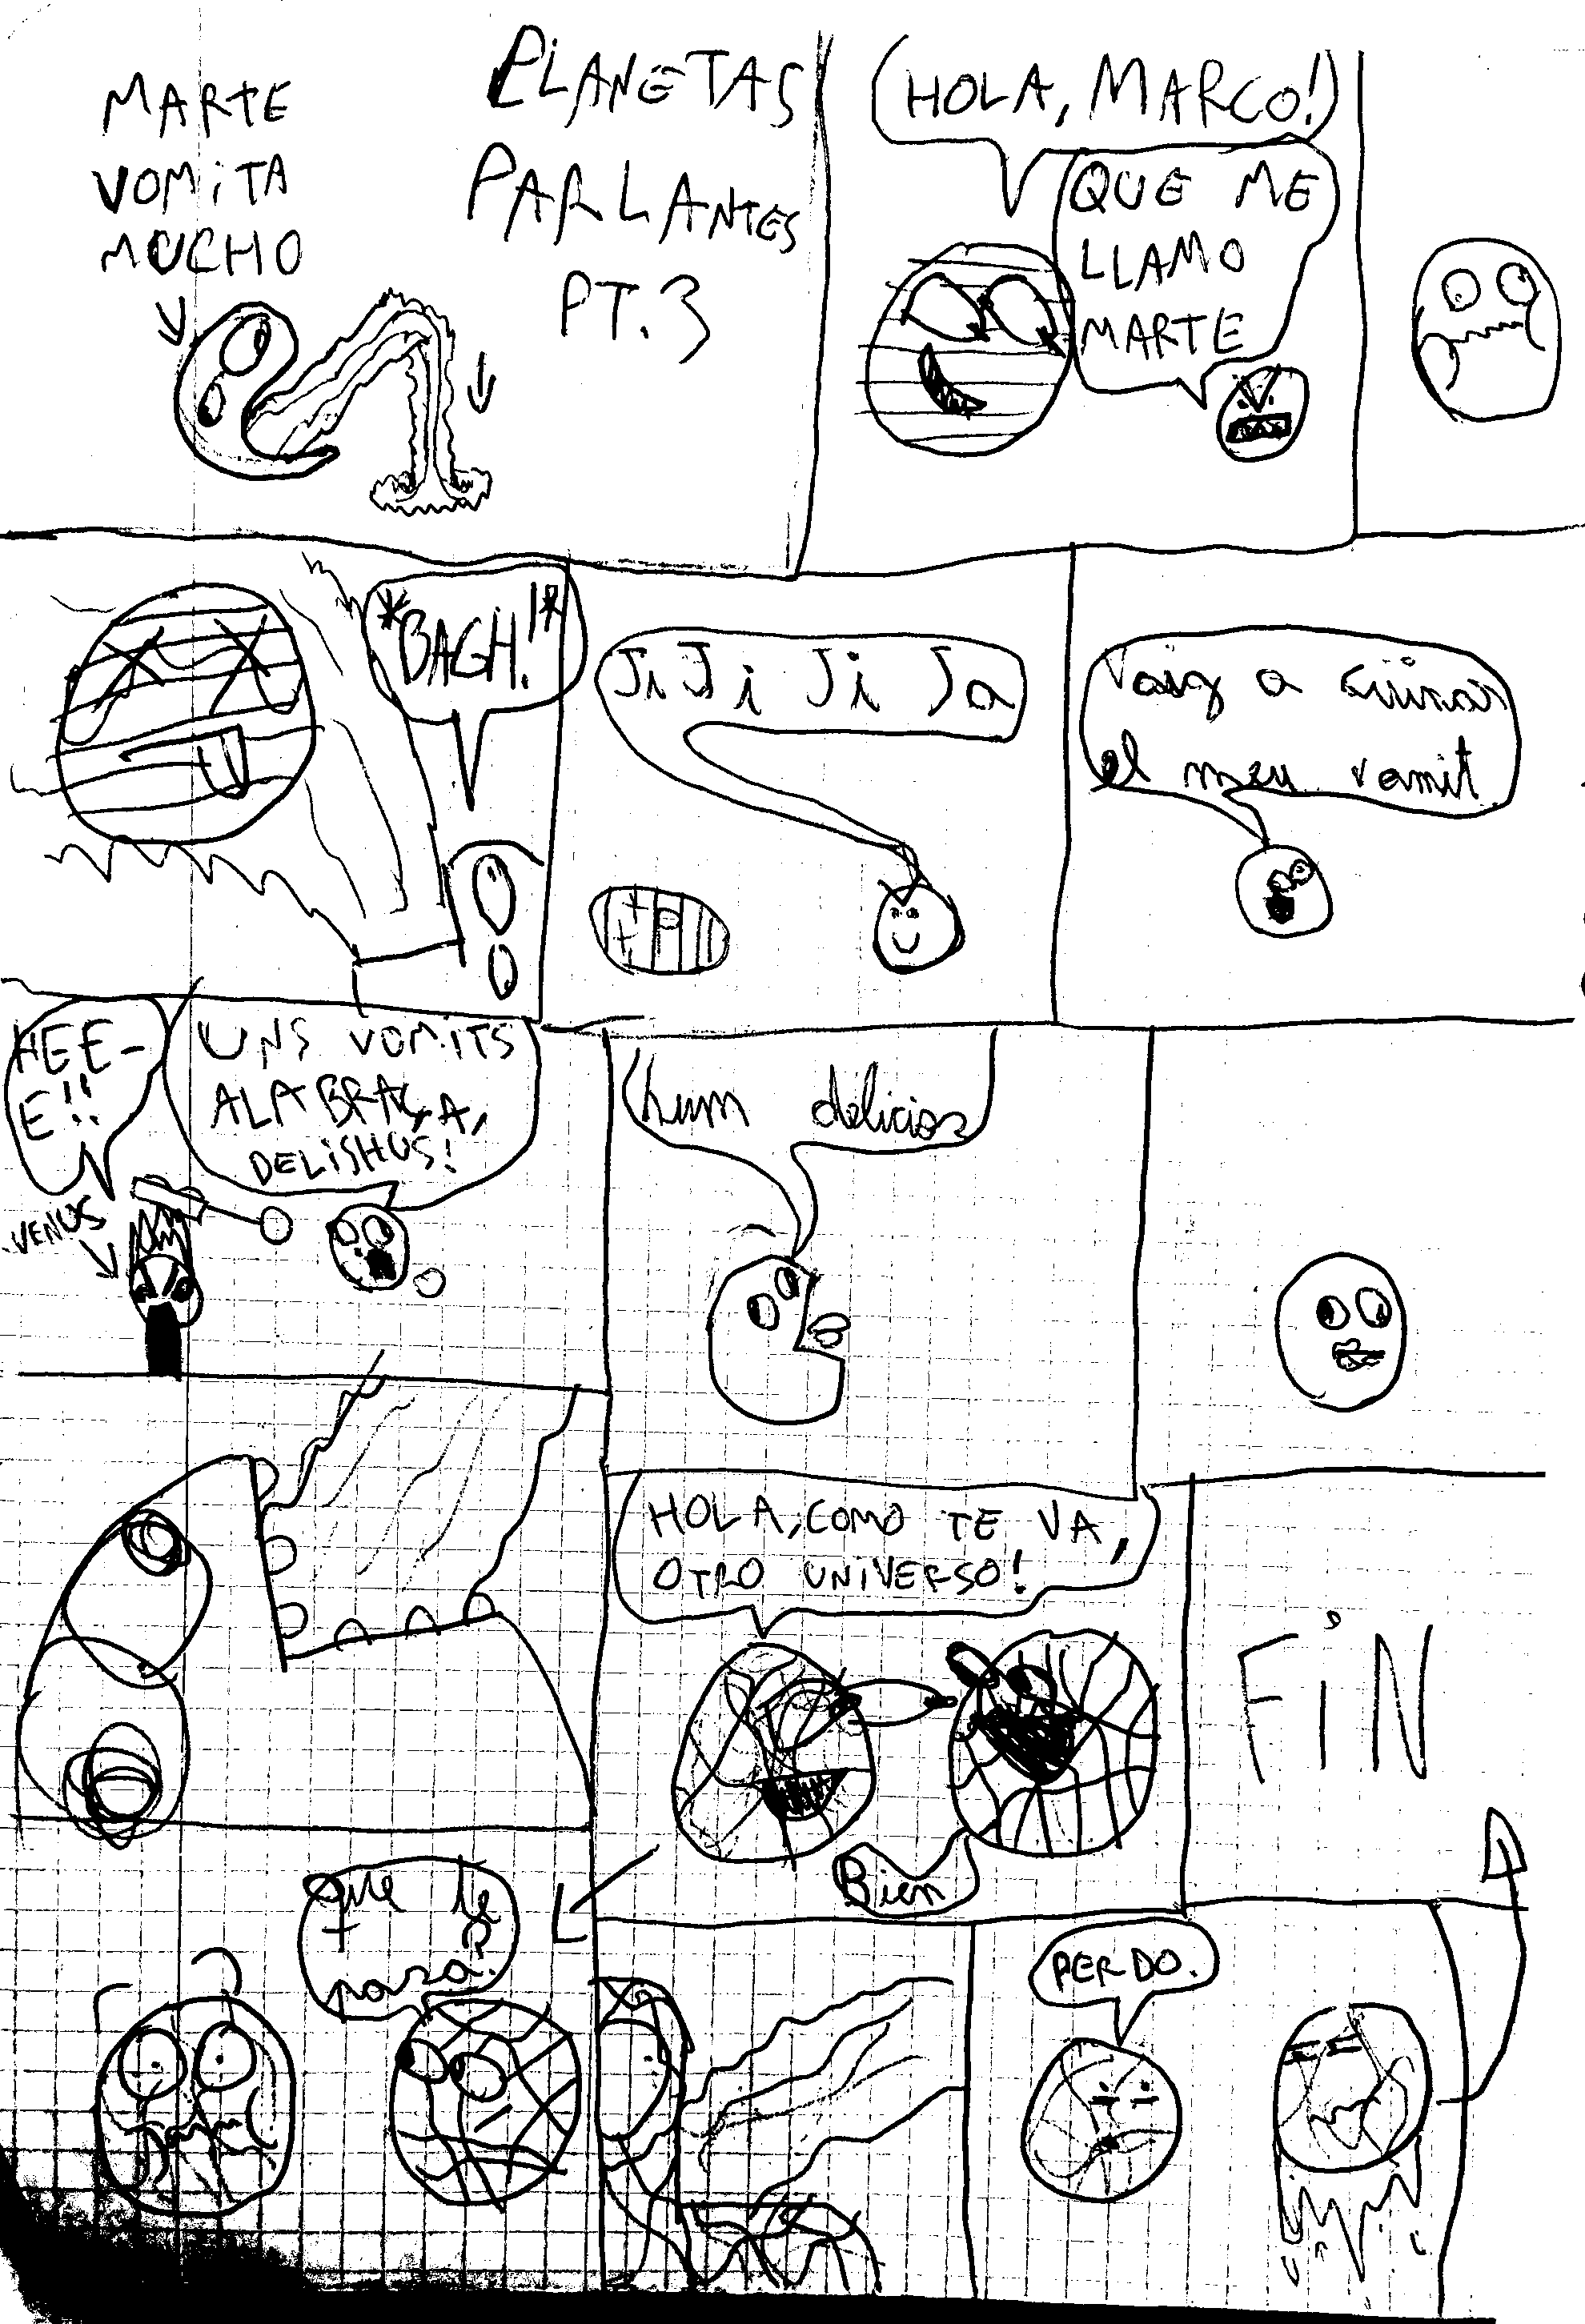 MARTE
VOMITA
MUCHO
PLANETAS
PARLANTES
PT.3
HOLA, MARCO!
QUE ME
LLAMO
MARTE
*BAGH!*
Ji Ji Ji Ja
Vaig a cuinar
el meu vomit
HEE-
E!!
VENUS
UNS VOMITS
A LA BRAÇA,
DELISHUS!
hum delicios
HOLA, COMO TE VA,
OTRO UNIVERSO!
Bien
FIN
que te
pasa?
PERDO.